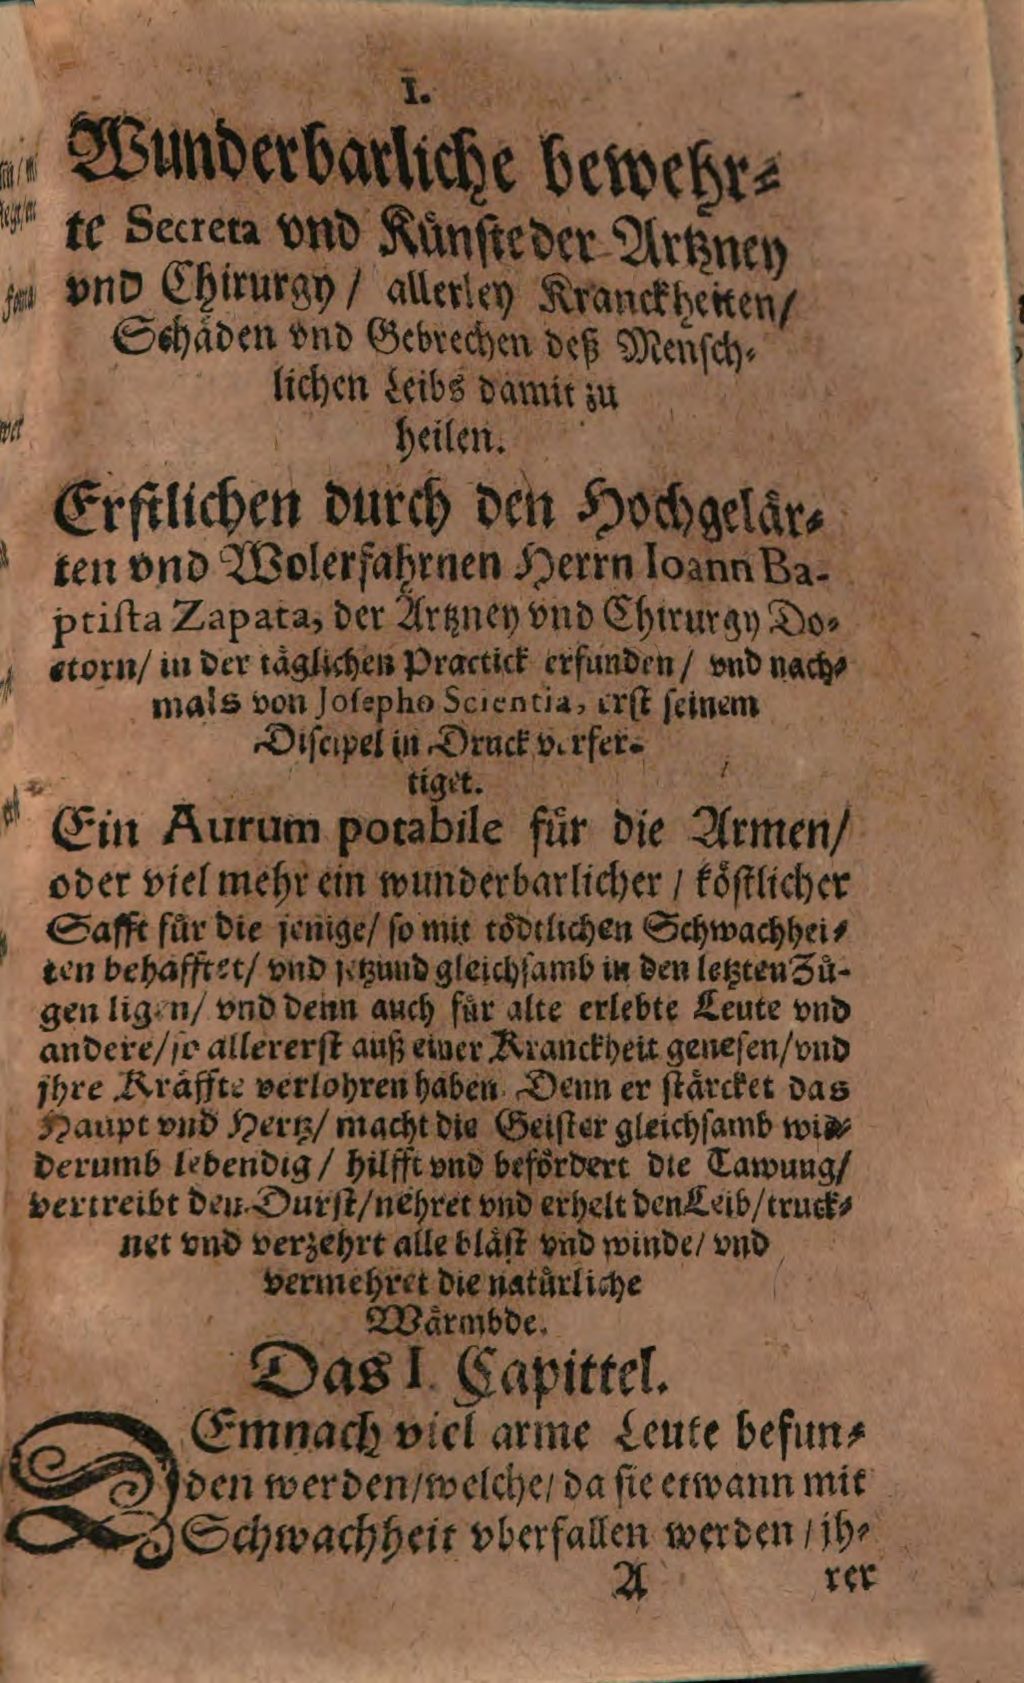 I.
Wunderbarliche bewehr⸗
te Secreta vnd Kuͤnste der Artzney
vnd Chirurgy / allerley Kranckheiten /
Schaͤden vnd Gebrechen deß Mensch⸗
lichen Leibs damit zu
heilen.
Erstlichen durch den Hochgelaͤr⸗
ten vnd Wolerfahrnen Herrn Ioann Ba-
ptista Zapata, der Artzney vnd Chirurgy Do⸗
ctorn / in der taͤglichen Practick erfunden / vnd nach⸗
mals von Josepho Scientia, erst seinem
Discipel in Druck verfer⸗
tiget.
Ein Aurum potabile fuͤr die Armen /
oder viel mehr ein wunderbarlicher / koͤstlicher
Safft fuͤr die jenige / so mit toͤdtlichen Schwachhei⸗
ten behafftet / vnd jetzund gleichsamb in den letzten Zuͤ⸗
gen ligen / vnd denn auch fuͤr alte erlebte Leute vnd
andere / so allererst auß einer Kranckheit genesen / vnd
jhre Kraͤffte verlohren haben. Denn er staͤrcket das
Haupt vnd Hertz / macht die Geister gleichsamb wi⸗
derumb lebendig / hilfft vnd befoͤrdert die Tawung /
vertreibt den Durst / nehret vnd erhelt den Leib / truck⸗
net vnd verzehrt alle blaͤst vnd winde / vnd
vermehret die natuͤrliche
Waͤrmbde.
Das I. Capittel.
DEmnach viel arme Leute befun⸗
den werden / welche / da sie etwann mit
Schwachheit vberfallen werden / jh⸗
A rer